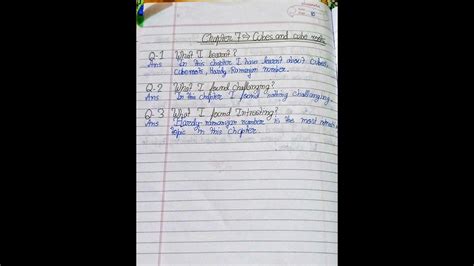 Chapter 7 ⇒ Cubes and cube roots
Q-1 What I learnt?
Ans In this chapter I have learnt about cubes,
cuberoots, Hardy Ramanujan number.
Q.2 What I found challanging?
Ans In this chapter I found nothing challanging.
Q-3 What I found Intrusting?
Ans Hardy-ramanujan number is the most
topic in this chapter.